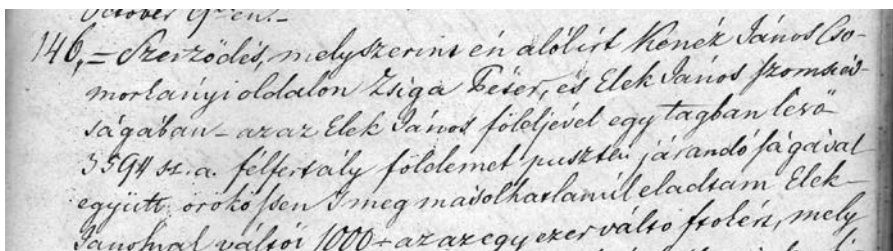 October 9én.-
146,= Szerződés, mely szerint én alólirt Kenéz János Cso-
morkányi oldalon Zsiga Péser, és Elek János szomszéd-
ságában - azaz Elek János földjével egy tagban lévő
3594 sz. a. félfertály földemet puszta járandóságával
együtt örökössen 's megmásolhatlanúl eladtam Elek
Jánosnak váltói 1000 - azaz egy ezer váltó ftokért, mely